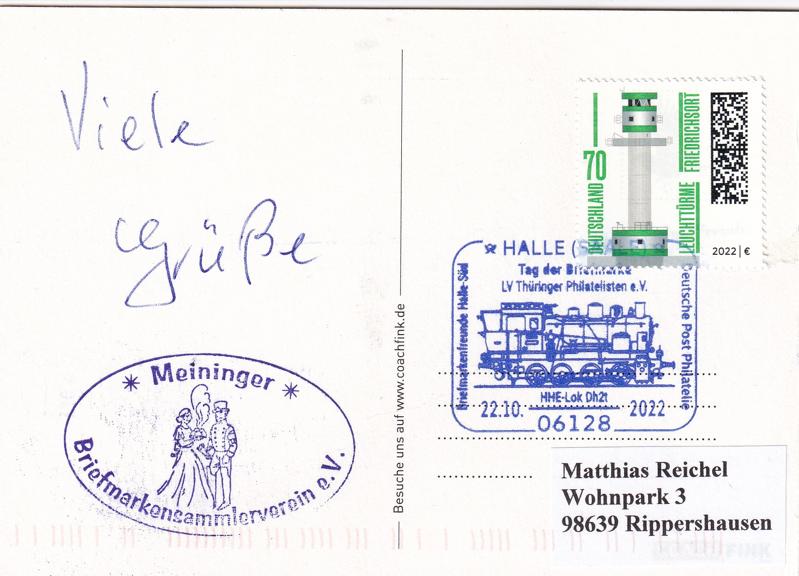 Viele
Grüße
Meininger
Briefmarkensammlerverein e.V.
Besuche uns auf www.coachfink.de
70
DEUTSCHLAND
LEUCHTTÜRME
FRIEDRICHSORT
2022 | €
HALLE (SAALE)
Tag der Briefmarke
LV Thüringer Philatelisten e.V.
Briefmarkenfreunde Halle-Süd
Deutsche Post Philatelie
HHE-Lok Dh2t
22.10. 2022
06128
Matthias Reichel
Wohnpark 3
98639 Rippershausen